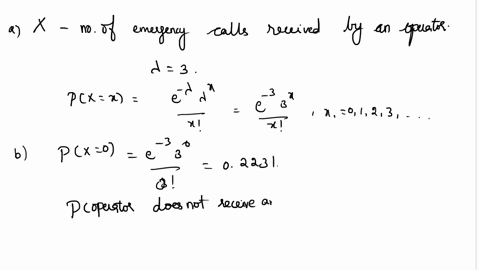 a) X - no. of emergency calls received by an operator.
λ = 3.
P(X=x) = e^{-λ} λ^x / x! = e^{-3} 3^x / x! , x, = 0, 1, 2, 3, ....
b) P(X=0) = e^{-3} 3^0 / 0! = 0.2231.
P(operator does not receive a